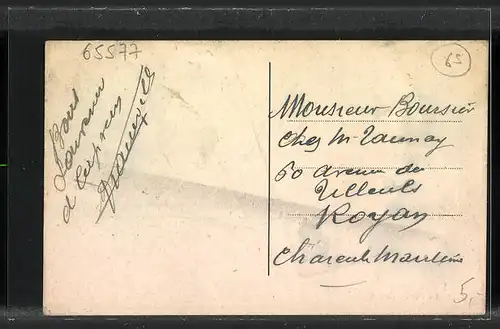 65577
65
Bons
Souvenirs
d'Express
Monsieur Boursier
Chez Mr Launay
60 avenue des
Tilleuls
Royan
Charente Maritime
5,-